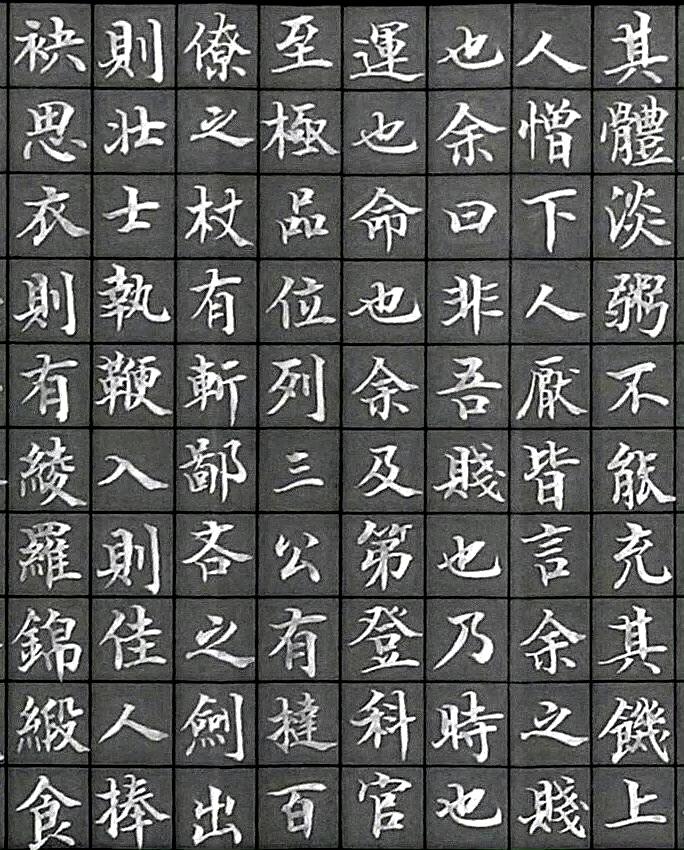 其體淡粥不能充其饑上
人憎下人厭皆言余之賤
也余曰非吾賤也乃時也
運也命也余及第登科官
至極品位列三公有撻百
僚之杖有斬鄙吝之劍出
則壯士執鞭入則佳人捧
袂思衣則有綾羅錦緞食